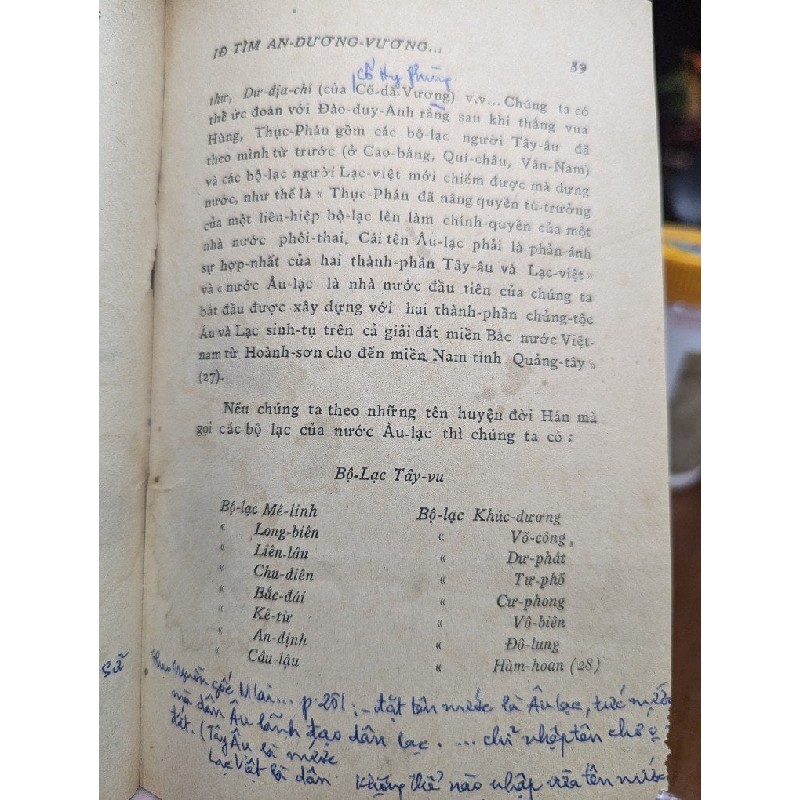 ĐI TÌM AN-DƯƠNG-VƯƠNG... 89
Cố Hy Phùng
thư, Dư-địa-chí (của Cố-dã-Vương) v.v... Chúng ta có
thể ức đoán với Đào-duy-Anh rằng sau khi thắng vua
Hùng, Thục-Phán gồm các bộ-lạc người Tây-âu đã
theo mình từ trước (ở Cao-bằng, Qui-châu, Vân-Nam)
và các bộ-lạc người Lạc-việt mới chiếm được mà dựng
nước, như thế là « Thục-Phán đã nâng quyền tù-trưởng
của một liên-hiệp bộ-lạc lên làm chính-quyền của một
nhà nước phôi-thai. Cái tên Âu-lạc phải là phản-ánh
sự hợp-nhất của hai thành-phần Tây-âu và Lạc-việt»
và « nước Âu-lạc là nhà nước đầu tiên của chúng ta
bắt đầu được xây dựng với hai thành-phần chủng-tộc
Âu và Lạc sinh-tụ trên cả giải đất miền Bắc nước Việt-
nam từ Hoành-sơn cho đến miền Nam tỉnh Quảng-tây»
(27).
Nếu chúng ta theo những tên huyện đời Hán mà
gọi các bộ lạc của nước Âu-lạc thì chúng ta có :
Bộ-Lạc Tây-vu
Bộ-lạc Mê-linh Bộ-lạc Khúc-dương
« Long-biên « Võ-công
« Liên-lâu « Dư-phát
« Chu-diên « Tư-phố
« Bắc-đái « Cư-phong
« Kê-từ « Vô-biên
« An-định « Đô-lung
« Câu-lậu « Hàm-hoan (28)
sử
theo Nguồn gốc Mlai... p.281 : - đặt tên nước là Âu lạc, tức nước
mà dân Âu lãnh đạo dân lạc. ... chỉ nhập tên
đất. (Tây Âu là nước
Lạc Việt là dân Không thể nào nhập vừa tên nước